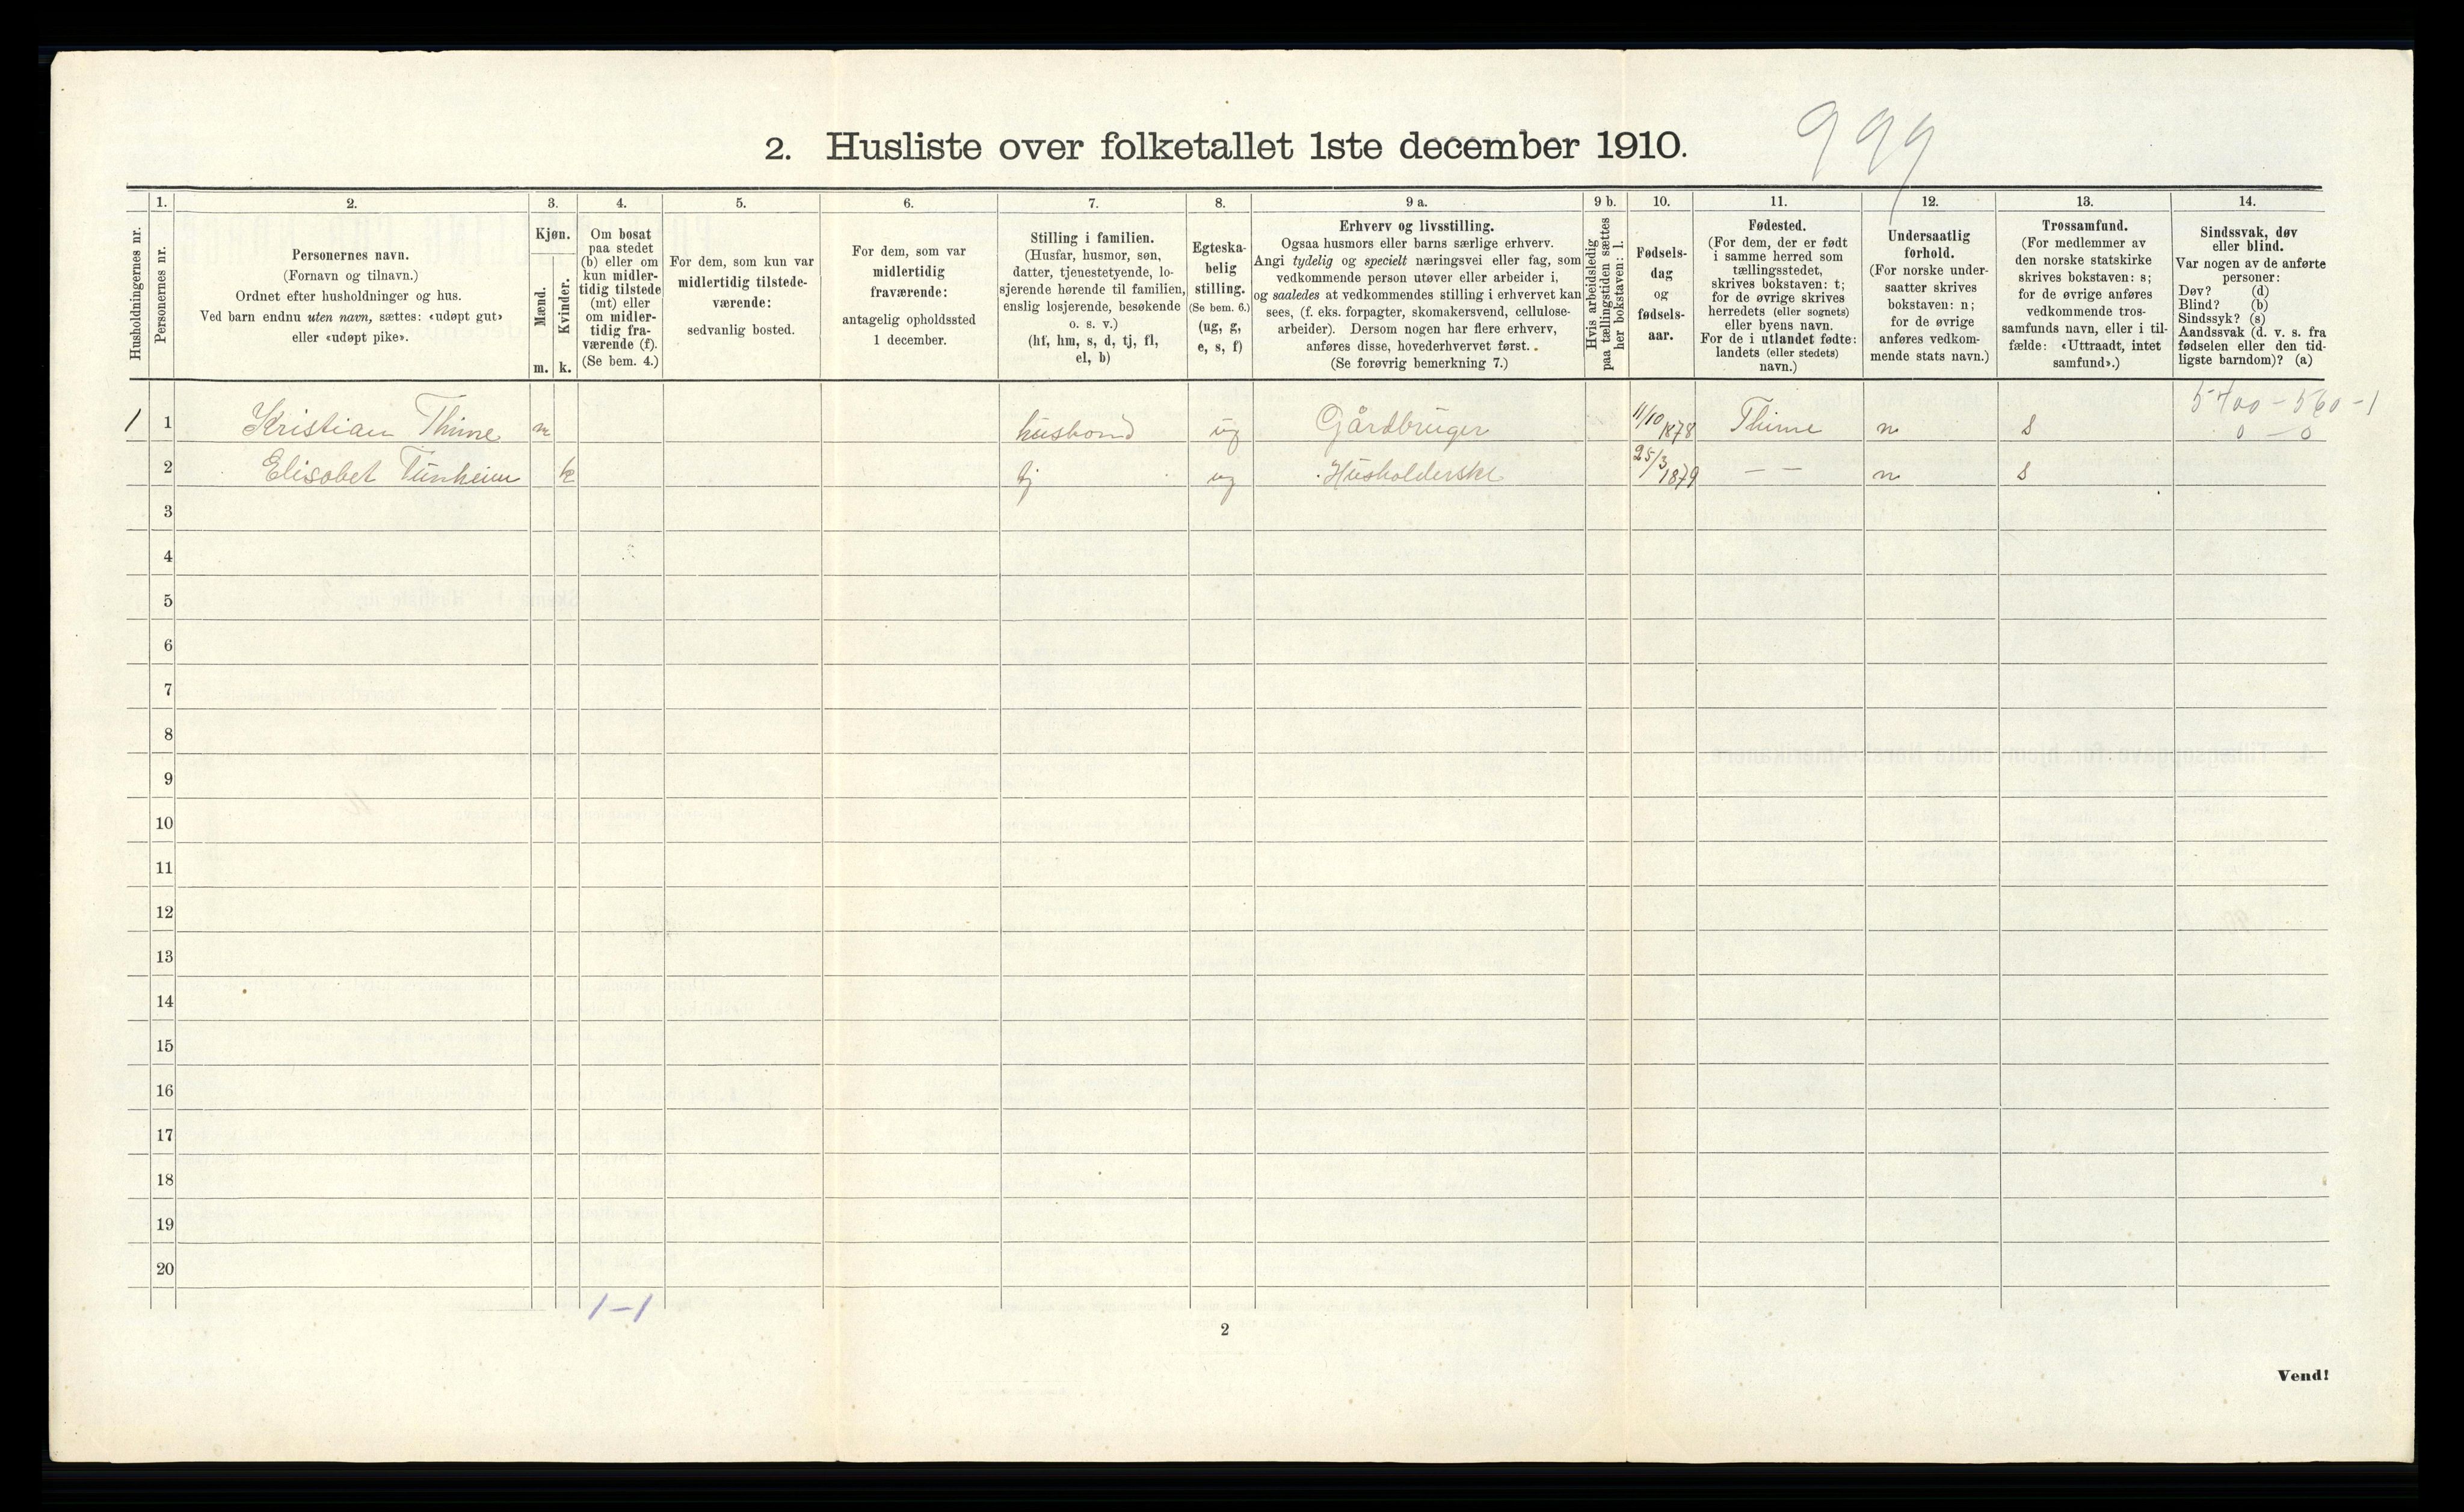 999
2. Husliste over folketallet 1ste december 1910.
Husholdningernes nr.
1.
Personernes nr.
2.
Personernes navn.
(Fornavn og tilnavn.)
Ordnet efter husholdninger og hus.
Ved barn endnu uten navn, sættes: «udøpt gut»
eller «udøpt pike».
3.
Kjøn.
Mænd.
m.
Kvinder.
k.
4.
Om bosat
paa stedet
(b) eller om
kun midler-
tidig tilstede
(mt) eller
om midler-
tidig fra-
værende (f).
(Se bem. 4.)
5.
For dem, som kun var
midlertidig tilstede-
værende:
sedvanlig bosted.
6.
For dem, som var
midlertidig
fraværende:
antagelig opholdssted
1 december.
7.
Stilling i familien.
(Husfar, husmor, søn,
datter, tjenestetyende, lo-
sjerende hørende til familien,
enslig losjerende, besøkende
o. s. v.)
(hf, hm, s, d, tj, fl,
el, b)
8.
Egteska-
belig
stilling.
(Se bem. 6.)
(ug, g,
e, s, f)
9 a.
Erhverv og livsstilling.
Ogsaa husmors eller barns særlige erhverv.
Angi tydelig og specielt næringsvei eller fag, som
vedkommende person utøver eller arbeider i,
og saaledes at vedkommendes stilling i erhvervet kan
sees, (f. eks. forpagter, skomakersvend, cellulose-
arbeider). Dersom nogen har flere erhverv,
anføres disse, hovederhvervet først.
(Se forøvrig bemerkning 7.)
9 b.
Hvis arbeidsledig
paa tællingstiden sættes
her bokstaven: l.
10.
Fødsels-
dag
og
fødsels-
aar.
11.
Fødested.
(For dem, der er født
i samme herred som
tællingsstedet,
skrives bokstaven: t;
for de øvrige skrives
herredets (eller sognets)
eller byens navn.
For de i utlandet fødte:
landets (eller stedets)
navn.)
12.
Undersaatlig
forhold.
(For norske under-
saatter skrives
bokstaven: n;
for de øvrige
anføres vedkom-
mende stats navn.)
13.
Trossamfund.
(For medlemmer av
den norske statskirke
skrives bokstaven: s;
for de øvrige anføres
vedkommende tros-
samfunds navn, eller i til-
fælde: «Uttraadt, intet
samfund».)
14.
Sindssvak, døv
eller blind.
Var nogen av de anførte
personer:
Døv? (d)
Blind? (b)
Sindssyk? (s)
Aandssvak (d. v. s. fra
fødselen eller den tid-
ligste barndom)? (a)
5700 - 560 - 1
0 - 0
1 1 Kristian Thime m husbond ug Gårdbruger 11/10 1878 Thime n s
2 Elisabet Tunheim k tj ug Husholderske 25/3 1879 — — n s
3
4
5
6
7
8
9
10
11
12
13
14
15
16
17
18
19
20
1-1
2
Vend!